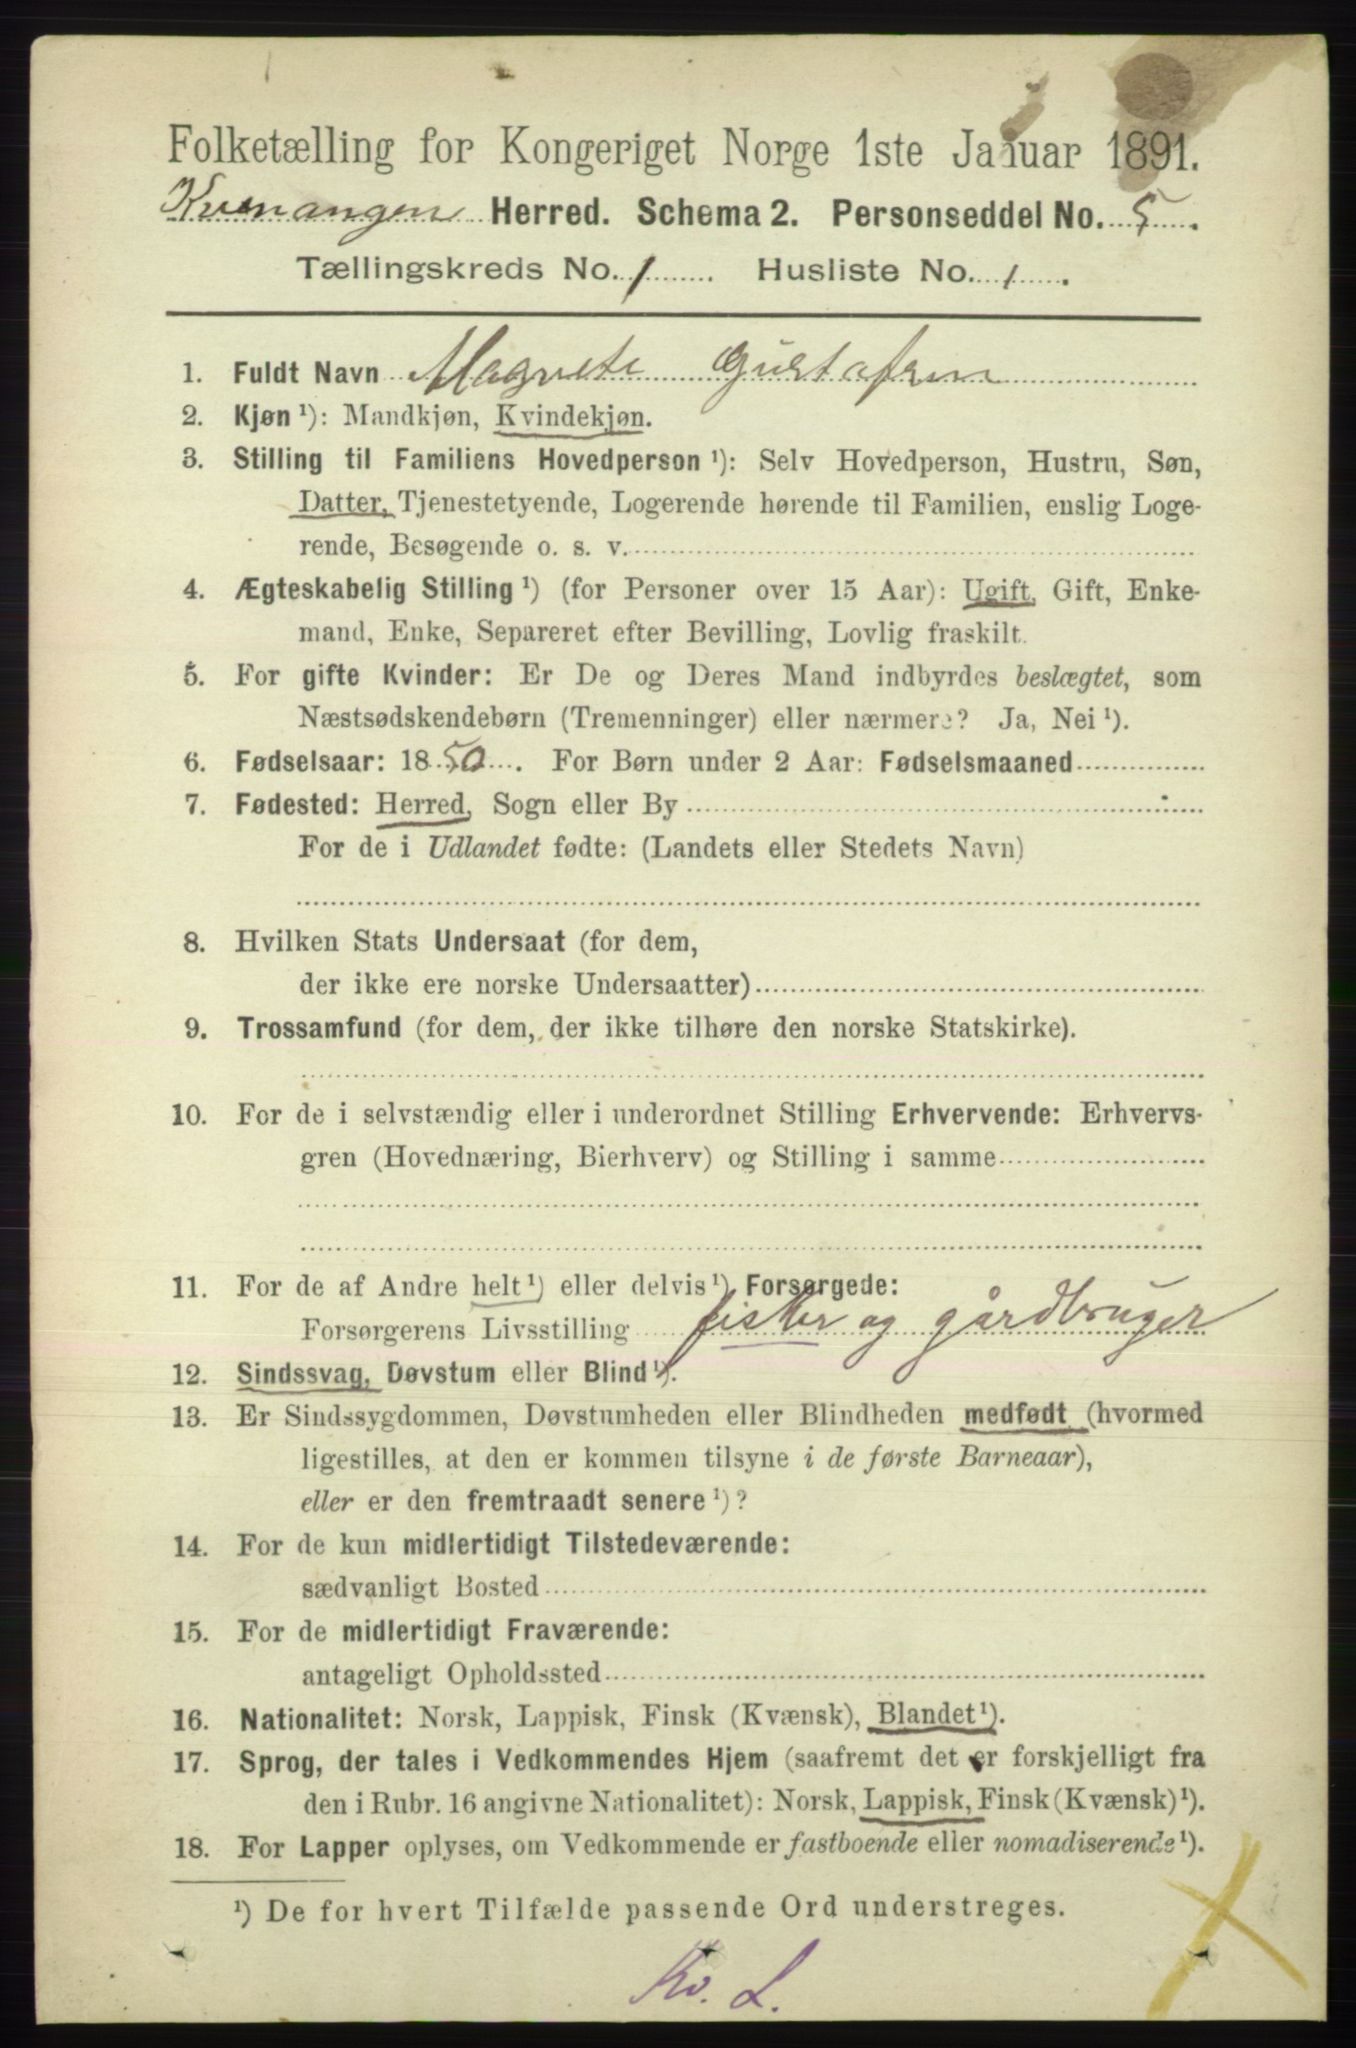 Folketælling for Kongeriget Norge 1ste Januar 1891.
Kvænangen Herred. Schema 2. Personseddel No. 5.
Tællingskreds No. 1. Husliste No. 1.
1. Fuldt Navn Magrete Gustafsen
2. Kjøn ¹): Mandkjøn, Kvindekjøn.
3. Stilling til Familiens Hovedperson ¹): Selv Hovedperson, Hustru, Søn,
Datter, Tjenestetyende, Logerende hørende til Familien, enslig Loge-
rende, Besøgende o. s. v.
4. Ægteskabelig Stilling ¹) (for Personer over 15 Aar): Ugift, Gift, Enke-
mand, Enke, Separeret efter Bevilling, Lovlig fraskilt.
5. For gifte Kvinder: Er De og Deres Mand indbyrdes beslægtet, som
Næstsødskendebørn (Tremenninger) eller nærmere? Ja, Nei ¹).
6. Fødselsaar: 1850. For Børn under 2 Aar: Fødselsmaaned
7. Fødested: Herred, Sogn eller By
For de i Udlandet fødte: (Landets eller Stedets Navn)
8. Hvilken Stats Undersaat (for dem,
der ikke ere norske Undersaatter)
9. Trossamfund (for dem, der ikke tilhøre den norske Statskirke).
10. For de i selvstændig eller i underordnet Stilling Erhvervende: Erhvervs-
gren (Hovednæring, Bierhverv) og Stilling i samme
11. For de af Andre helt ¹) eller delvis ¹) Forsørgede:
Forsørgerens Livsstilling fisker og gårdbruger
12. Sindssvag, Døvstum eller Blind ¹).
13. Er Sindssygdommen, Døvstumheden eller Blindheden medfødt (hvormed
ligestilles, at den er kommen tilsyne i de første Barneaar),
eller er den fremtraadt senere ¹)?
14. For de kun midlertidigt Tilstedeværende:
sædvanligt Bosted
15. For de midlertidigt Fraværende:
antageligt Opholdssted
16. Nationalitet: Norsk, Lappisk, Finsk (Kvænsk), Blandet ¹).
17. Sprog, der tales i Vedkommendes Hjem (saafremt det er forskjelligt fra
den i Rubr. 16 angivne Nationalitet): Norsk, Lappisk, Finsk (Kvænsk) ¹).
18. For Lapper oplyses, om Vedkommende er fastboende eller nomadiserende ¹).
¹) De for hvert Tilfælde passende Ord understreges.
Kv. L.